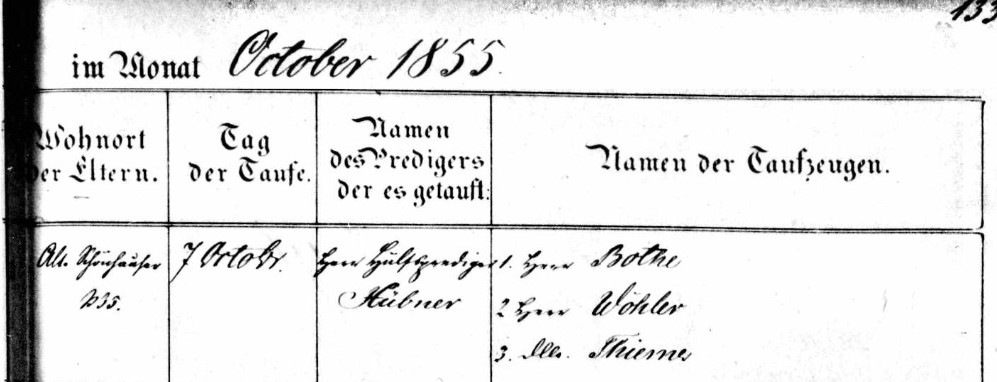 133
im Monat October 1855.
Wohnort
der Eltern.
Tag
der Taufe.
Namen
des Predigers
der es getauft.
Namen der Taufzeugen.
Alt. Schönhauser
No 35.
7 Octobr.
Herr Hülfsprediger
Hübner
1. Herr Bothe
2 Herr Wöhler
3. Dlle. Thieme